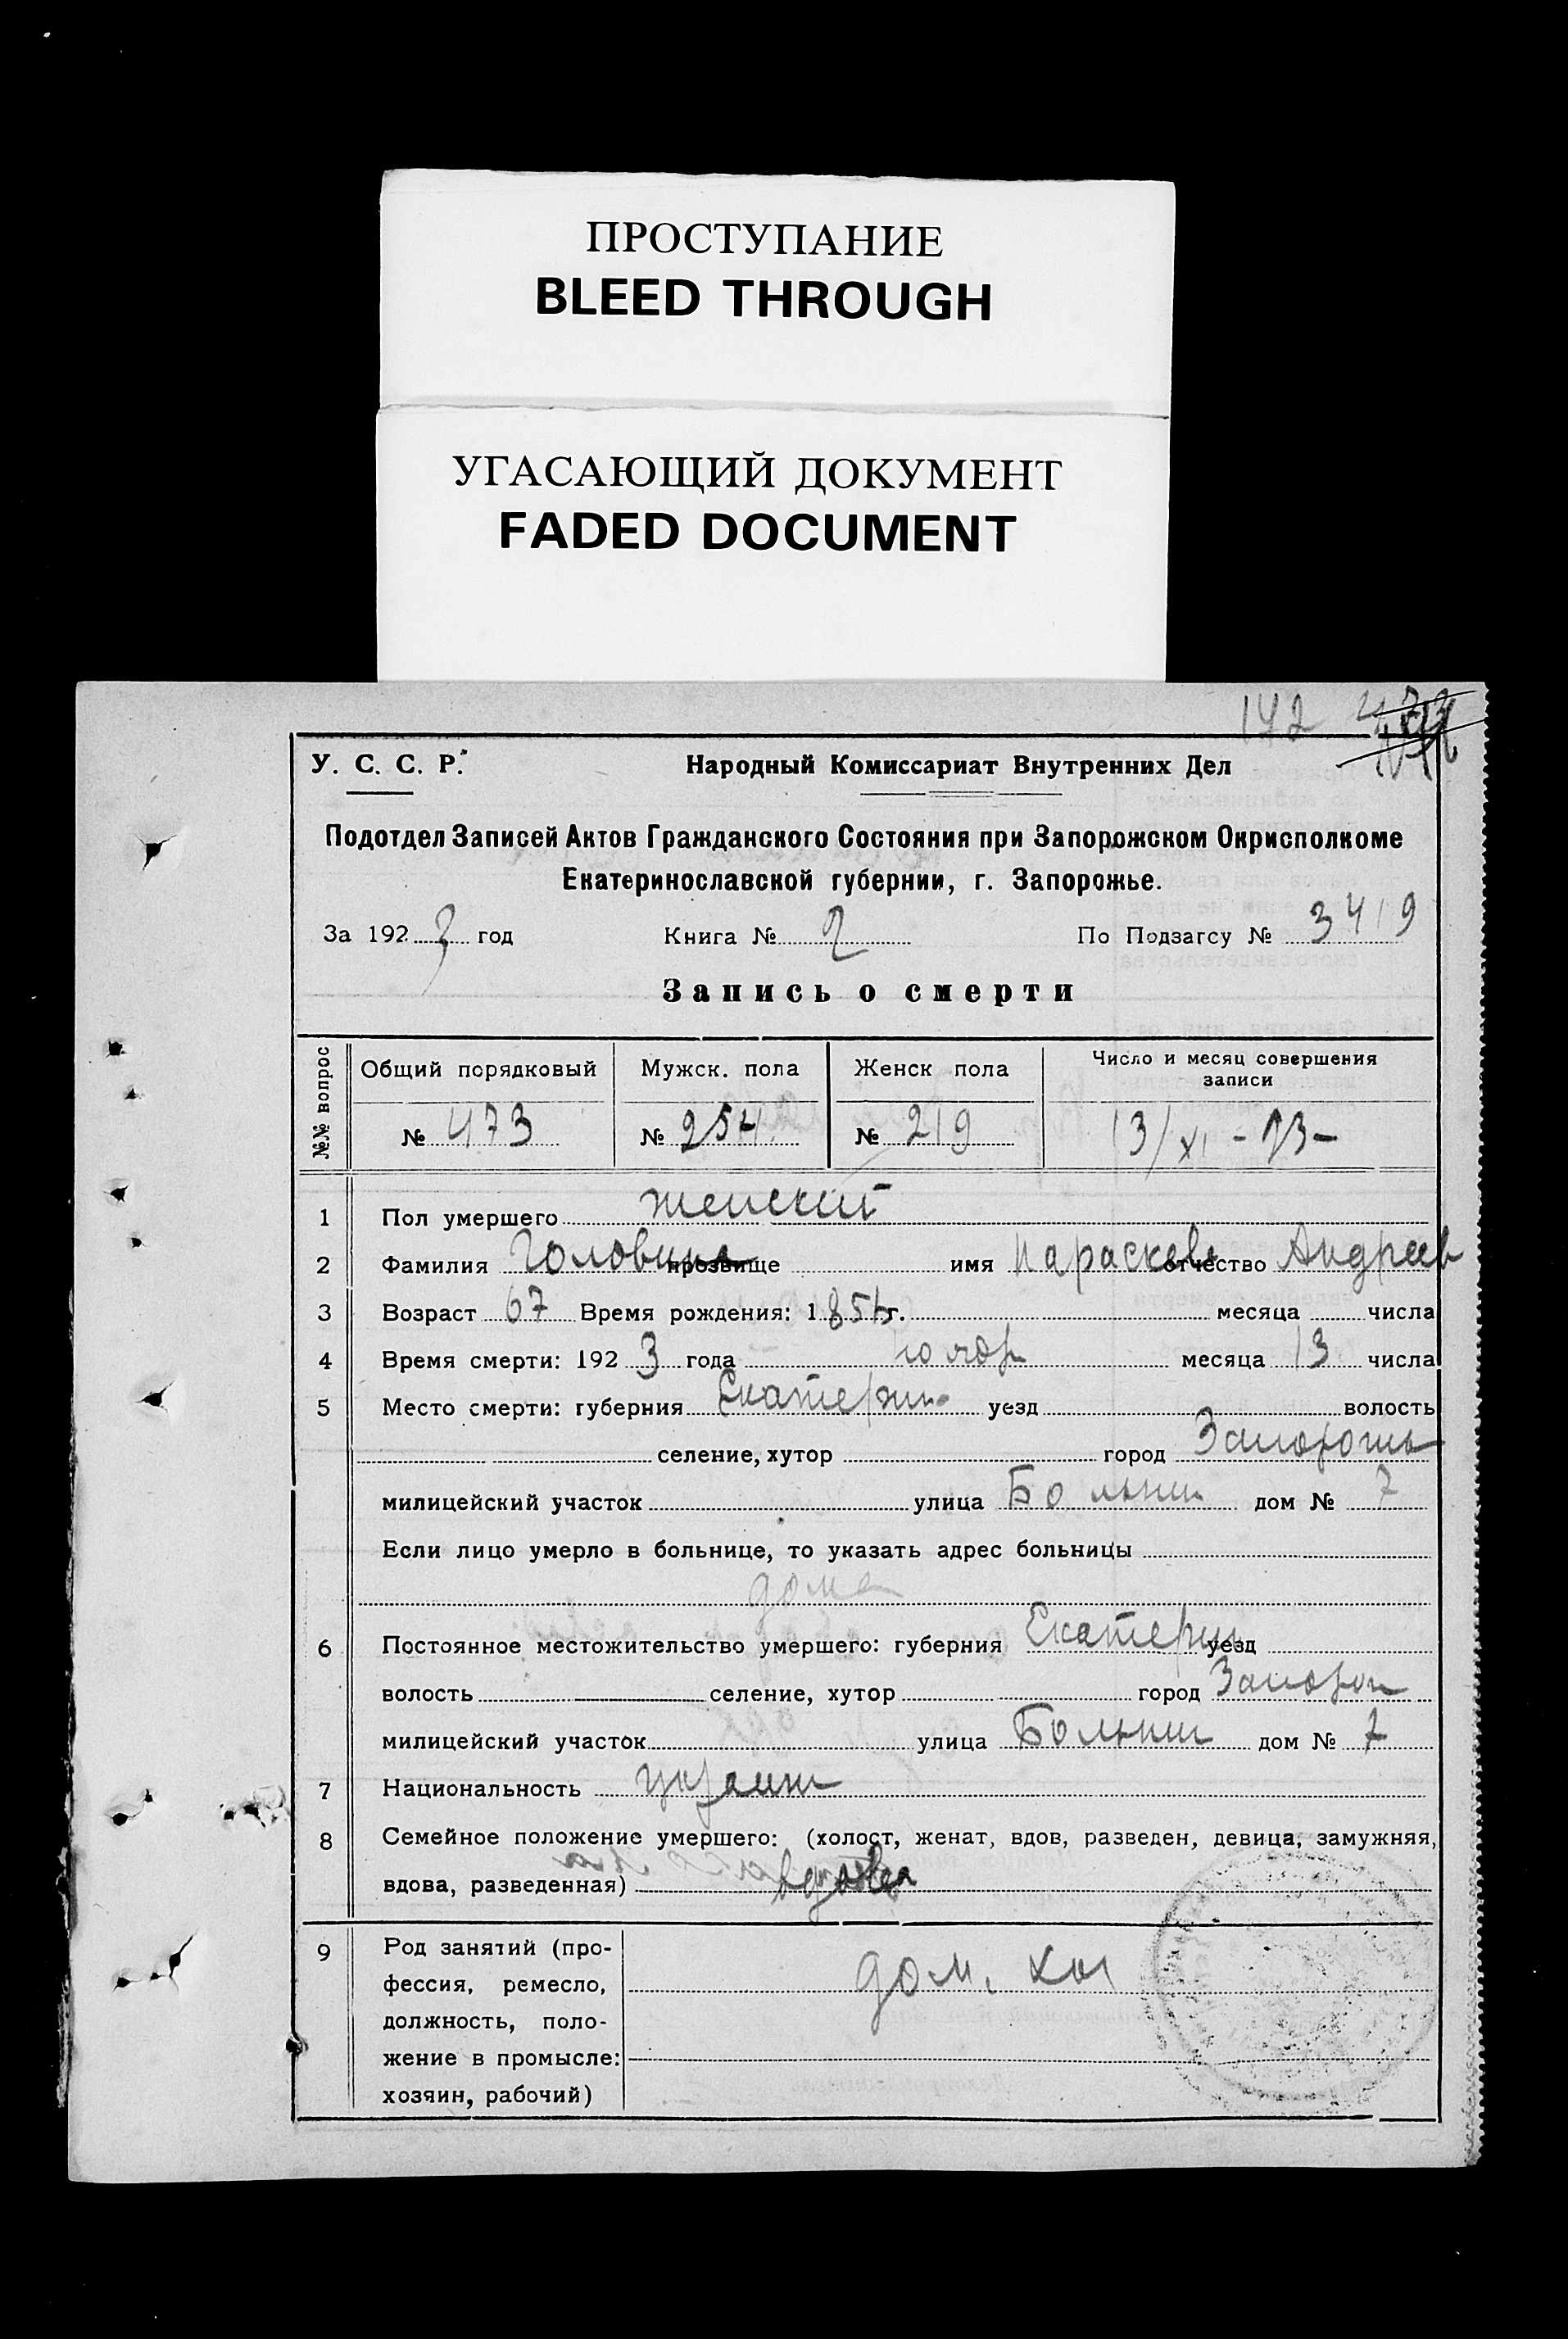 ПРОСТУПАНИЕ
BLEED THROUGH
УГАСАЮЩИЙ ДОКУМЕНТ
FADED DOCUMENT
172
У. С. С. Р. Народный Комиссариат Внутренних Дел
Подотдел Записей Актов Гражданского Состояния при Запорожском Окрисполкоме
Екатеринославской губернии, г. Запорожье.
За 192 3 год Книга № 2 По Подзагсу № 3419
Запись о смерти
№№ вопрос Общий порядковый Мужск. пола Женск пола Число и месяц совершения
записи
№ 473 № 254 № 219 13/XI - 23 -
1 Пол умершего женский
2 Фамилия Головина прозвище имя Параскева отчество Андреев
3 Возраст 67 Время рождения: 185 г. месяца числа
4 Время смерти: 192 3 года ноябр месяца 13 числа
5 Место смерти: губерния Екатерин уезд волость
селение, хутор город Запорожье
милицейский участок улица дом № 7
Если лицо умерло в больнице, то указать адрес больницы
дома
6 Постоянное местожительство умершего: губерния Екатерин уезд
волость селение, хутор город Запорож
милицейский участок улица дом № 7
7 Национальность украин
8 Семейное положение умершего: (холост, женат, вдов, разведен, девица, замужняя,
вдова, разведенная) вдова
9 Род занятий (про-
фессия, ремесло, дом. хоз
должность, поло-
жение в промысле:
хозяин, рабочий)